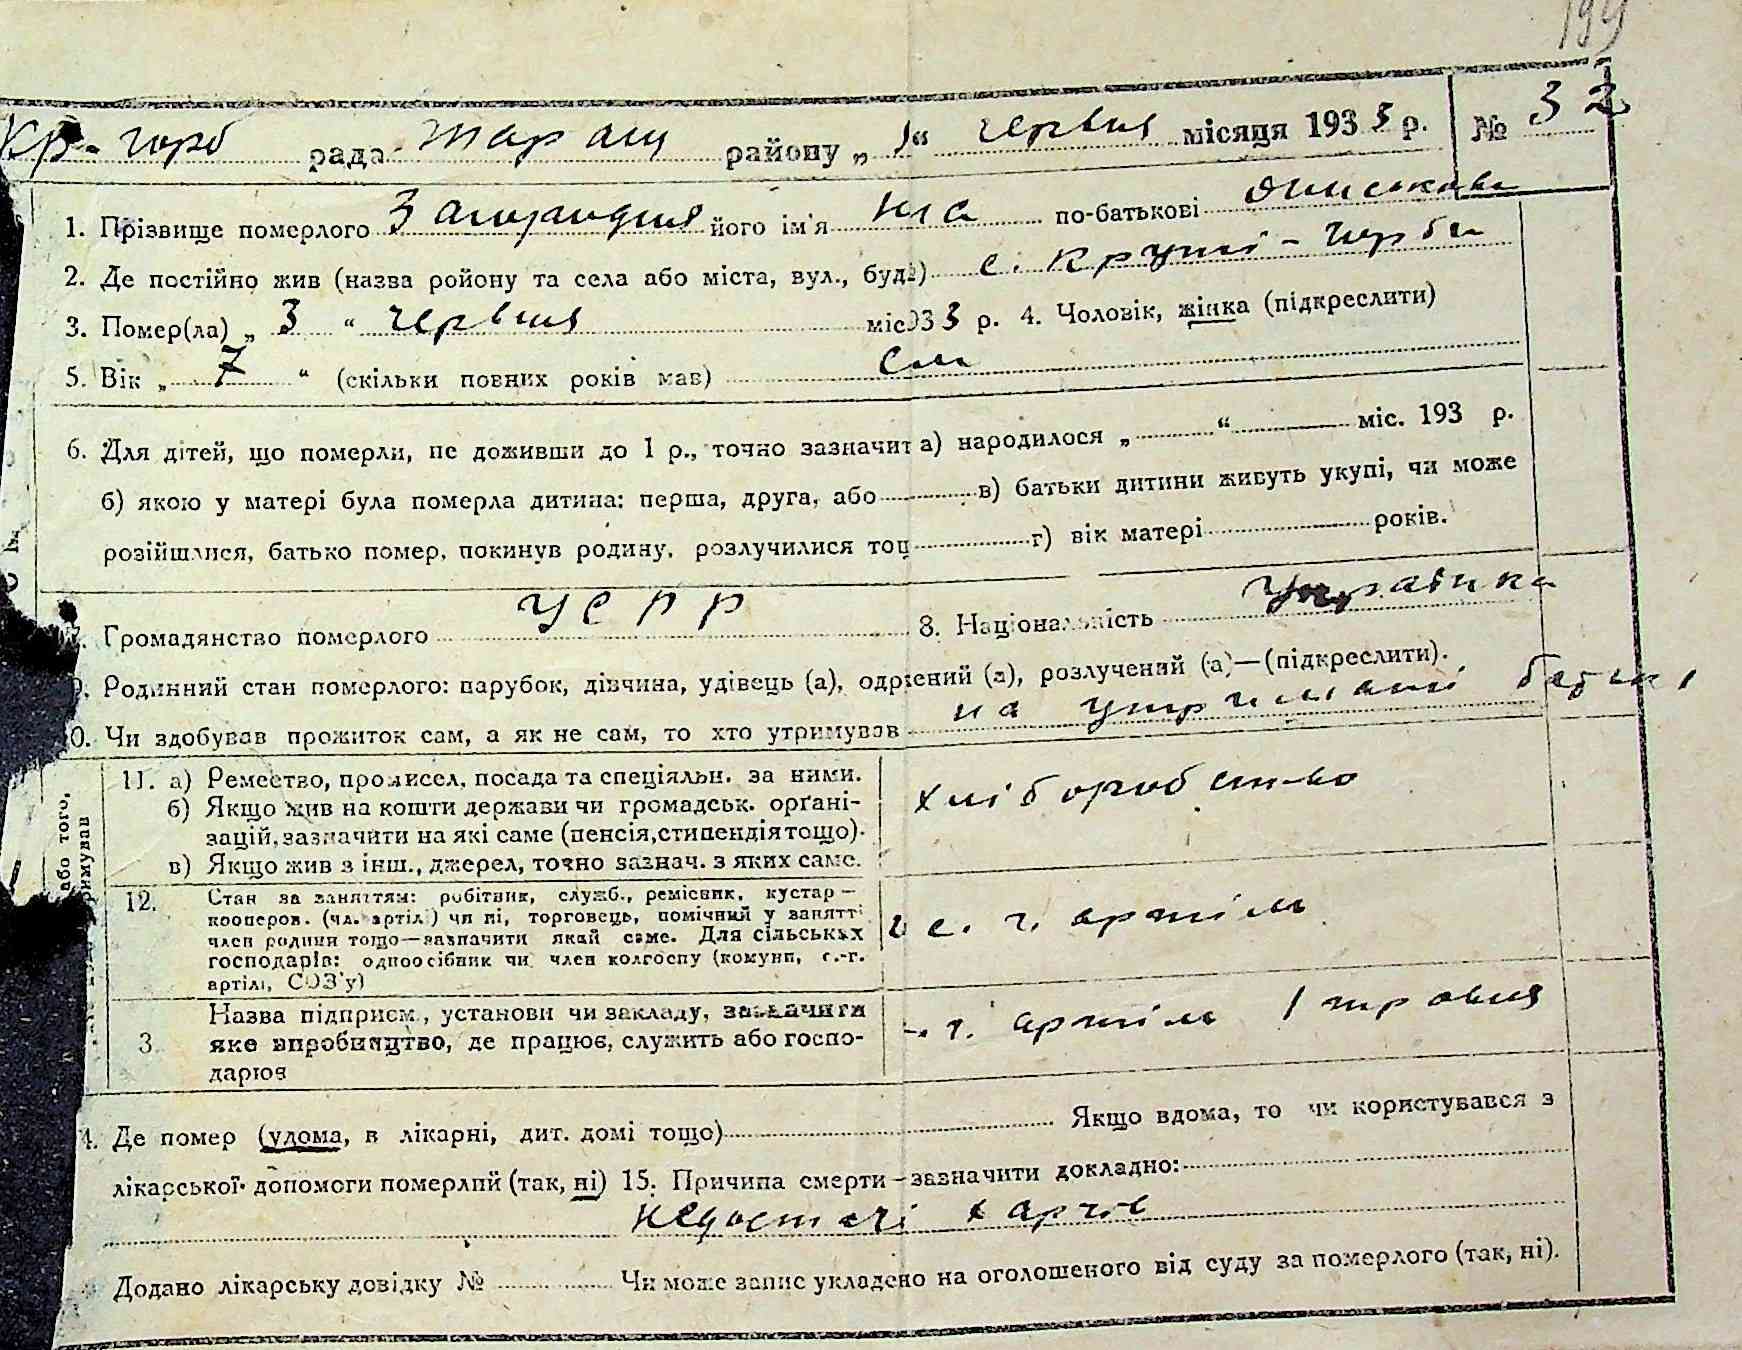 199
Кр-горб рада Таращ району „ 1 “ червня місяця 1933 р. № 32
1. Прізвище померлого його ім'я по-батькові
2. Де постійно жив (назва ройону та села або міста, вул., буд№) с. Круті-Горби
3. Помер(ла) „ 3 “ червня міс 933 р. 4. Чоловік, жінка (підкреслити)
5. Вік „ 7 “ (скільки повних років мав) сім
6. Для дітей, що померли, не доживши до 1 р., точно зазначит а) народилося „ “ міс. 193 р.
б) якою у матері була померла дитина: перша, друга, або в) батьки дитини живуть укупі, чи може
розійшлися, батько помер, покинув родину, розлучилися тощ г) вік матері років.
7. Громадянство померлого УСРР 8. Національність Українка
9. Родинний стан померлого: парубок, дівчина, удівець (а), одружений (а), розлучений (а)—(підкреслити).
0. Чи здобував прожиток сам, а як не сам, то хто утримував на утриманні батькі
або того,
римував
11. а) Ремество, промисел, посада та спеціяльн. за ними.
б) Якщо жив на кошти держави чи громадськ. орґані-
зацій, зазначити на які саме (пенсія, стипендія тощо).
в) Якщо жив з інш., джерел, точно зазнач. з яких саме.
хліборобство
12. Стан за заняттям: робітник, служб., ремісник, кустар —
кооперов. (чл. артілі) чи ні, торговець, помічний у занятті
член родини тощо—зазначити який саме. Для сільських
господарів: одноосібник чи член колгоспу (комуни, с.-г.
артілі, СОЗ'у)
ч с. г. артіли
3. Назва підприєм., установи чи закладу, зазначити
яке виробництво, де працює, служить або госпо-
дарює
г. артіли Ітровня
4. Де помер (удома, в лікарні, дит. домі тощо) Якщо вдома, то чи користувався з
лікарської допомоги померлий (так, ні) 15. Причина смерти—зазначити докладно:
недостачі харчів
Додано лікарську довідку № Чи може запис укладено на оголошеного від суду за померлого (так, ні).